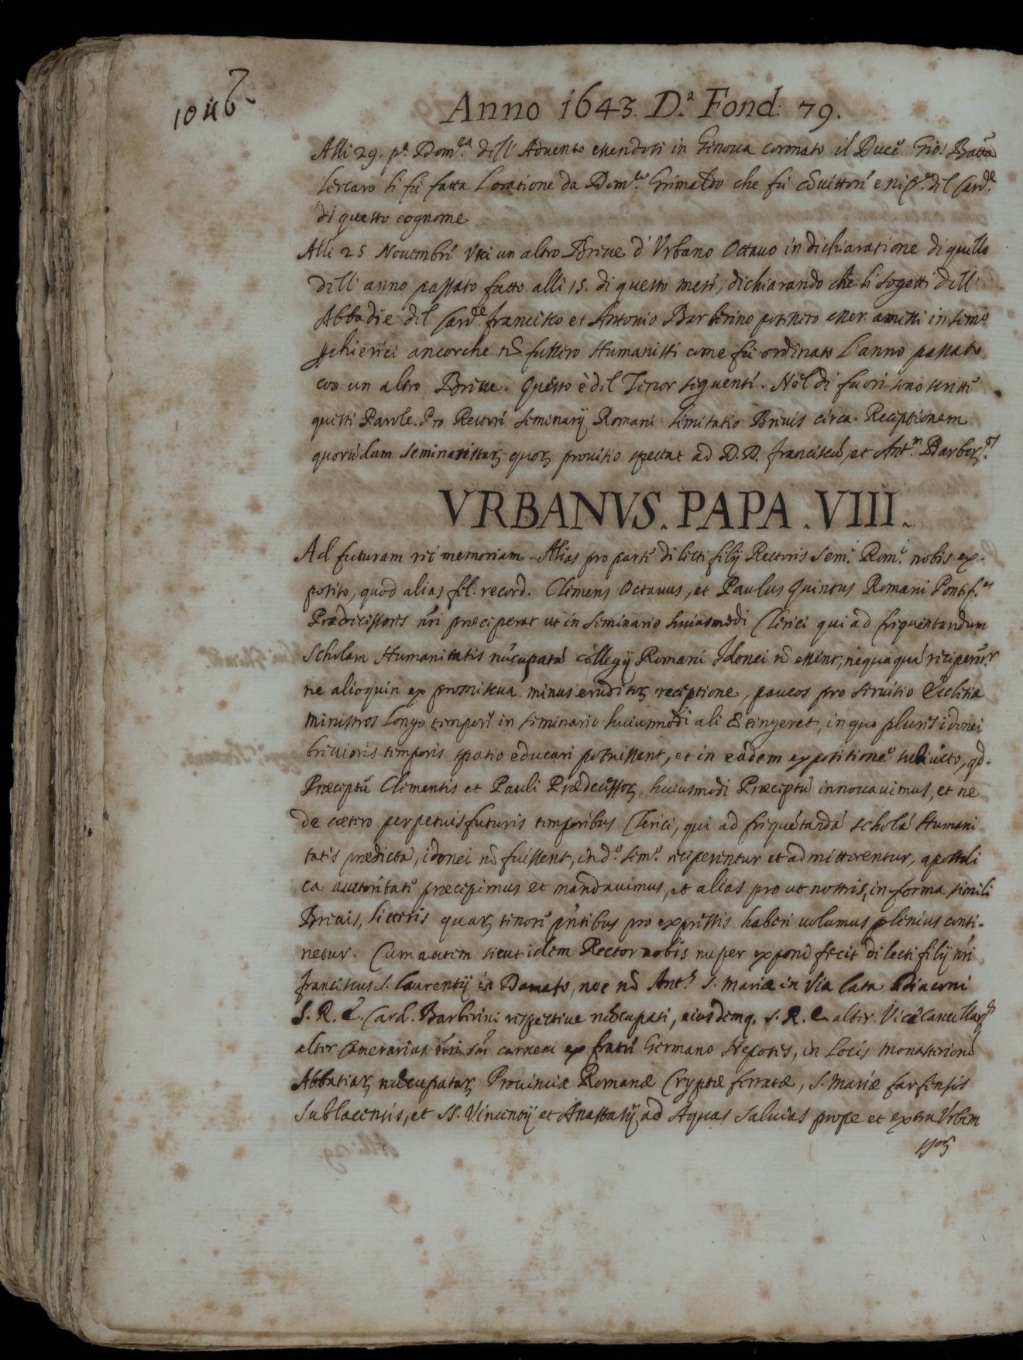 1046
Anno 1643. D.ª Fond: 79.
Alli 29. p.ª Dom.ca dell' Aduento essendosi in Genoua coronato il Duce Gio: Batta
Lercaro li fu fatta l'oratione da Dom.co Grimaldo che fu cōuittore e nip.e del Card.e
di questo cognome
Alli 25 Nouembre Vscì un altro Breue d' Vrbano Octauo in dichiaratione di quello
dell' anno passato fatto alli 15. di questo mese, dichiarando che li sogetti dell'
Abbadie del Card.e francesco et Antonio Barberino potessero esser amessi in sem.o
chierici ancorche nō fussero Humanisti come fu ordinato l'anno passato
con un altro Breue. Questo è del Tenor seguente. Nel di fuori sono scritte
queste Parole. Pro Rectore Seminarij Romani limitatio Breuis circa Receptionem
quorūdam Seminaristarꝫ, quorꝫ prouisio spectat ad D.D. franciscū, et Ant.m Barber.os
VRBANVS. PAPA. VIII.
Ad futuram rei memoriam. Alias pro parte dilecti filij Rectoris Sem. Rom. nobis ex-
posito, quod alias fel. record. Clemens Octauus, et Paulus Quintus Romani Pontif.es
Prædecessores nri præceperat ut in Seminario huiusmodi Clerici qui ad frequentandum
Scholam Humanitatis nūcupatā Collegij Romani Idonei nō essent, nequaquā reciperētr
ne alioquin ex promiscua minus eruditorꝫ receptione, paucos pro seruitio Ecclesiæ
ministros longo tempore in seminario huiusmodi ali cōtingeret, in quo plures idonei
breuioris temporis spatio educari potuissent, et in eadem expositione subiuncto, qd.
Præceptū Clementis et Pauli Prædecessorꝫ, huiusmodi Præceptū innouauimus, et ne
de cætero perpetuis futuris temporibus Clerici, qui ad frequētandā scholā Humani
tatis prædictā, idonei nō fuissent, in d.o sem.o reciperentur et admitterentur, apostoli
ca autoritate præcipimus et mandauimus, et alias prout nostris, in forma simili
Breuis, litteris quarꝫ tenore pñtibus pro expressis haberi uolumus plenius conti-
netur. Cum autem sicut idem Rector nobis nuper exponi fecit dilecti filij nri
franciscus S. Laurentij in Damaso, nec nō Ant.s S. Mariæ in Via lata Diaconi
S. R. E. Card. Barberini respectiue nūcupati, eiusdemq. S. R. E. alter Vicecancellarꝰ
alter Camerarius nri sm carnem ex fratre Germano Nepotes, in Locis Monasteriorū
Abbatiarꝫ nūcupatarꝫ Prouinciæ Romanæ Cryptæ ferratæ, S. Mariæ farfensis
Sublacensis, et SS. Vincentij et Anastasij, ad Aquas Saluias prope et extra Vrbem